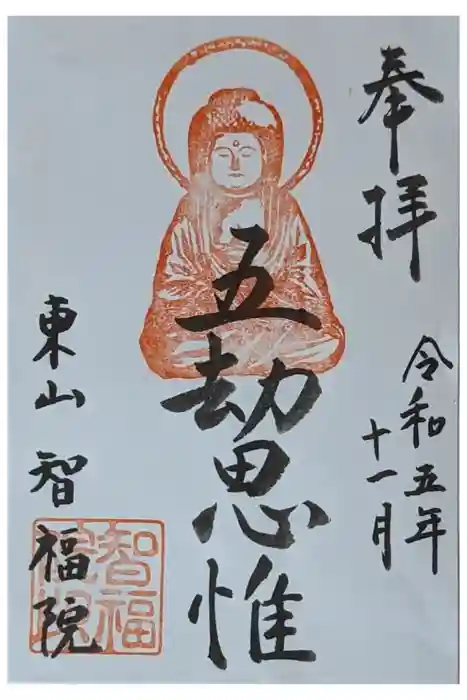 奉拝
令和五年
十一月
五劫思惟
東山智福院
智福